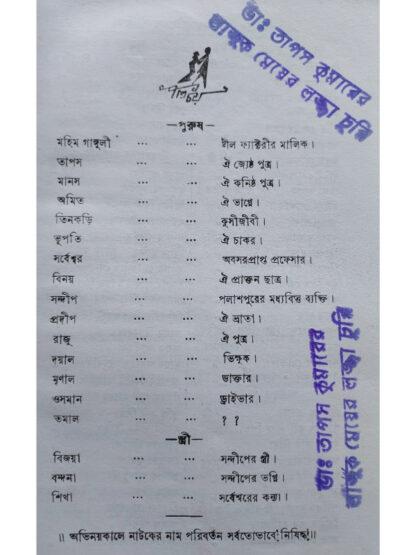 পরিচয়
ডাঃ তাপস কুমারের
লাজুক মেয়ের লজ্জা চুরি
—পুরুষ—
মহিম গাঙ্গুলী ... ... ষ্টীল ফ্যাক্টরীর মালিক।
তাপস ... ... ঐ জ্যেষ্ঠ পুত্র।
মানস ... ... ঐ কনিষ্ঠ পুত্র।
অমিত ... ... ঐ ভাগ্নে।
তিনকড়ি ... ... কুসীজীবী।
ভূপতি ... ... ঐ চাকর।
সর্বেশ্বর ... ... অবসরপ্রাপ্ত প্রফেসার।
বিনয় ... ... ঐ প্রাক্তন ছাত্র।
সন্দীপ ... ... পলাশপুরের মধ্যবিত্ত ব্যক্তি।
প্রদীপ ... ... ঐ ভ্রাতা।
রাজু ... ... ঐ পুত্র।
দয়াল ... ... ভিক্ষুক।
মৃণাল ... ... ডাক্তার।
ওসমান ... ... ড্রাইভার।
তমাল ... ... ? ?
—স্ত্রী—
বিজয়া ... ... সন্দীপের স্ত্রী।
বন্দনা ... ... সন্দীপের ভগ্নি।
শিখা ... ... সর্বেশ্বরের কন্যা।
॥ অভিনয়কালে নাটকের নাম পরিবর্তন সর্বতোভাবে নিষিদ্ধ ॥
ডাঃ তাপস কুমারের
লাজুক মেয়ের লজ্জা চুরি